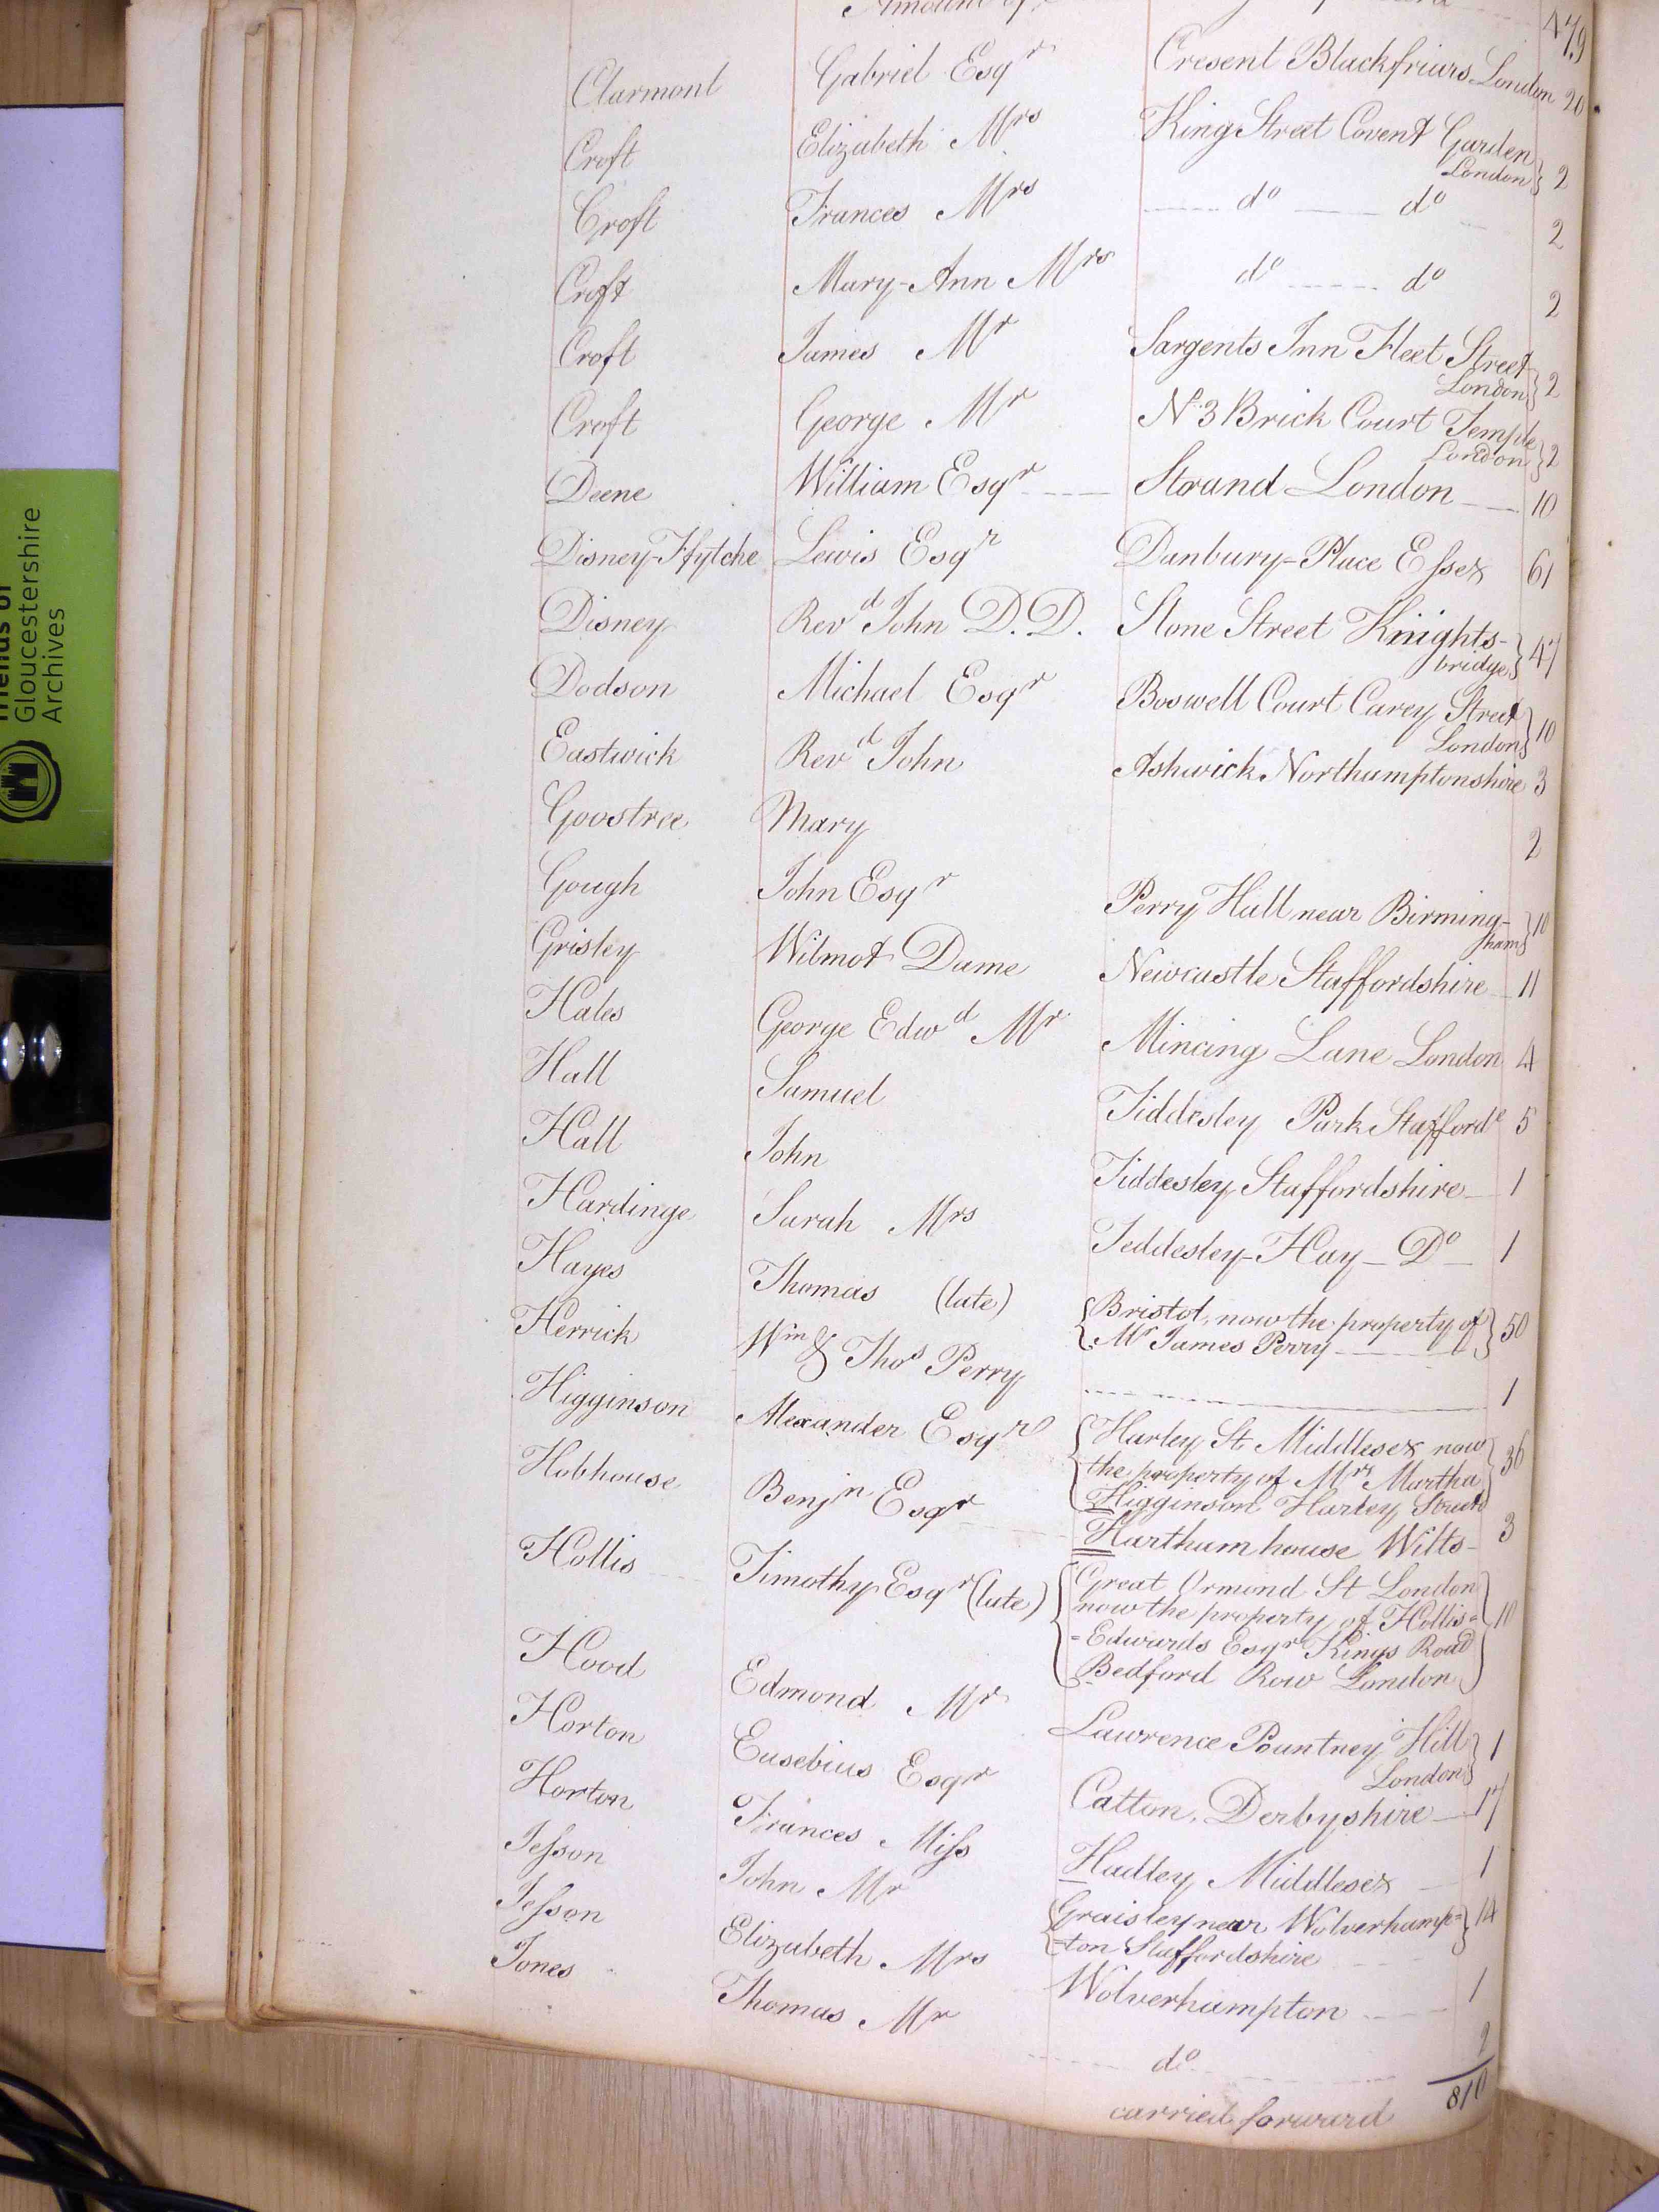 Amount of
479
Clarmont Gabriel Esqr Cresent Blackfriars London 20
Croft Elizabeth Mrs King Street Covent Garden
London } 2
Croft Frances Mrs do do 2
Croft Mary-Ann Mrs do do 2
Croft James Mr Sargents Inn Fleet Street
London } 2
Croft George Mr No 3 Brick Court Temple
London } 2
Deene William Esqr Strand London 10
Disney-Ffytche Lewis Esqr Danbury-Place Essex 61
Disney Revd John D.D. Slone Street Knights-
bridge } 47
Dodson Michael Esqr Boswell Court Carey Street
London } 10
Eastwick Revd John Ashwick Northamptonshire 3
Goostree Mary 2
Gough John Esqr Perry Hall near Birming-
ham } 10
Grisley Wilmot Dame Newcastle Staffordshire 11
Hales George Edwd Mr Mincing Lane London 4
Hall Samuel Tiddesley Park Stafforde 5
Hall John Tiddesley Staffordshire 1
Hardinge Sarah Mrs Teddesley-Hay-Do 1
Hayes Thomas (late) { Bristol, now the property of
Mr James Perry } 50
Herrick Wm & Thos Perry 1
Higginson Alexander Esqr { Harley St Middlesex now
the property of Mrs Martha
Higginson Harley Street } 36
Hobhouse Benjn Esqr Hartham house Wilts 3
Hollis Timothy Esqr (late) { Great Ormond St London
now the property of Hollis=
=Edwards Esqr Kings Road
Bedford Row London } 10
Hood Edmond Mr Lawrence Pountney Hill
London } 1
Horton Eusebius Esqr Catton, Derbyshire 17
Horton Frances Miss Hadley Middlesex 1
Jesson John Mr { Graisley near Wolverhamp=
=ton Staffordshire } 14
Jesson Elizabeth Mrs Wolverhampton 1
Jones Thomas Mr do 2
carried forward 810
Friends of
Gloucestershire
Archives